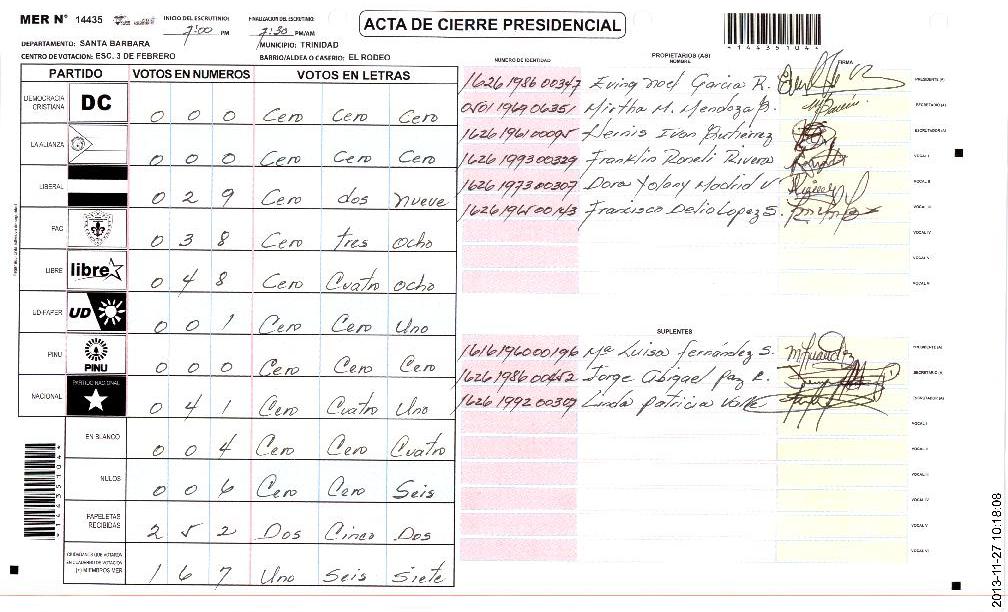 MER N° 14435
INICIO DEL ESCRUTINIO: 7:00 PM
FINALIZACION DEL ESCRUTINIO: 7:30 PM/AM
ACTA DE CIERRE PRESIDENCIAL
DEPARTAMENTO: SANTA BARBARA
MUNICIPIO: TRINIDAD
CENTRO DE VOTACION: ESC. 3 DE FEBRERO
BARRIO/ALDEA O CASERIO: EL RODEO
1443510441
PARTIDO VOTOS EN NUMEROS VOTOS EN LETRAS
DEMOCRACIA CRISTIANA DC 0 0 0 Cero Cero Cero
LA ALIANZA 0 0 0 Cero Cero Cero
LIBERAL 0 2 9 Cero dos nueve
PAC 0 3 8 Cero tres ocho
LIBRE libre 0 4 8 Cero Cuatro ocho
UD-FAPER UD 0 0 1 Cero Cero Uno
PINU PINU 0 0 0 Cero Cero Cero
NACIONAL PARTIDO NACIONAL 0 4 1 Cero Cuatro Uno
EN BLANCO 0 0 4 Cero Cero Cuatro
NULOS 0 0 6 Cero Cero Seis
PAPELETAS RECIBIDAS 2 5 2 Dos Cinco Dos
CIUDADANOS QUE VOTARON EN CUADERNO DE VOTACION (+) MIEMBROS MER 1 6 7 Uno Seis Siete
NUMERO DE IDENTIDAD PROPIETARIOS (AS) NOMBRE FIRMA
1626 1986 00347 Eving Noel Garcia R. PRESIDENTE (A)
0501 1969 06351 Mirtha M. Mendoza B. SECRETARIO (A)
1626 1961 00095 Hernis Ivan Gutierrez ESCRUTADOR (A)
1626 1993 00329 Franklin Roneli Rivera VOCAL I
1626 1973 00307 Dora Yolany Madrid V VOCAL II
1626 1965 00143 Francisco Delio Lopez S. VOCAL III
VOCAL IV
VOCAL V
VOCAL VI
SUPLENTES
1616 1960 00196 Mª Luisa Fernández S. PRESIDENTE (A)
1626 1986 00452 Jorge Abigael Paz R. SECRETARIO (A)
1626 1992 00307 Linda Patricia Valle ESCRUTADOR (A)
VOCAL I
VOCAL II
VOCAL III
VOCAL IV
VOCAL V
VOCAL VI
2013-11-27 10:18:08